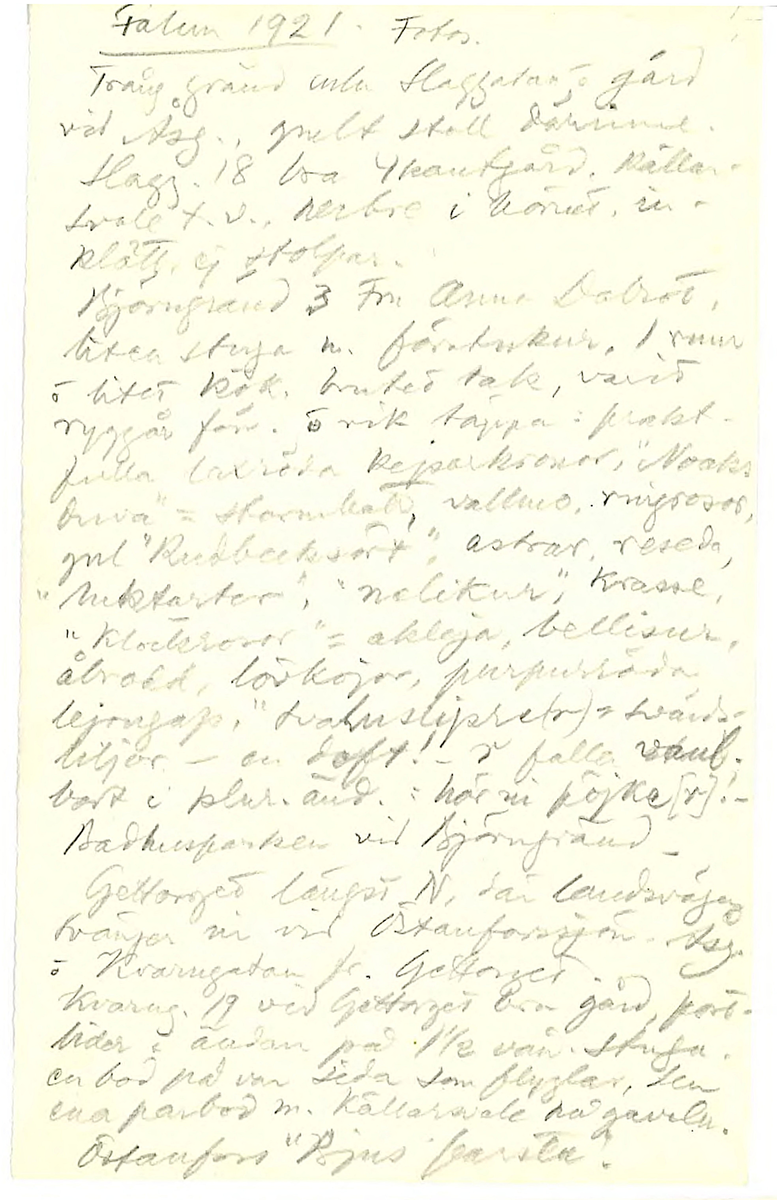 Falun 1921. Fotos.
Trång gränd mln Slaggatan o gård
vid Åsg., gnelt stall därinne.
Slagg. 18 bra 4kantgård. Källar-
svale t.v., herbre i hörnet, in-
klätt, ej stolpar.
Björngränd 3 Fru Anna Dalröt,
liten stuga m. förstukur, 1 rum
o litet kök. brutet tak, varit
ryggås förr. o rik täppa: prakt-
fulla laxröda kejsarkronor, "Noaks
duva" = stormhatt, vallmo, ringrosor,
gul "Rudbecksört", astrar, reseda,
"luktärter", "nelikur", krasse,
"Klockrosor" = akleja, bellisur,
åbrodd, lövkojor, purpurröda
lejongap, "svalusliprer(r) = svärds-
liljor – en doft! – r faller vanl.
bort i plur.änd.: hör ni pöjke[r]! –
Badhusparken vid Björngränd
Getttorget längst N, där landsvägen
svänger in vid Östanforssjön. Åsg.
o Kvarngatan fr. Gettorget.
Kvarng. 19 vid Gettorget bra gård, port-
lider i ändan på 1 1/2 vån. stuga.
en bod på var sida som flyglar, den
ena parbod m. källarsvale på gaveln.
Östanfors "Bjus farstu".